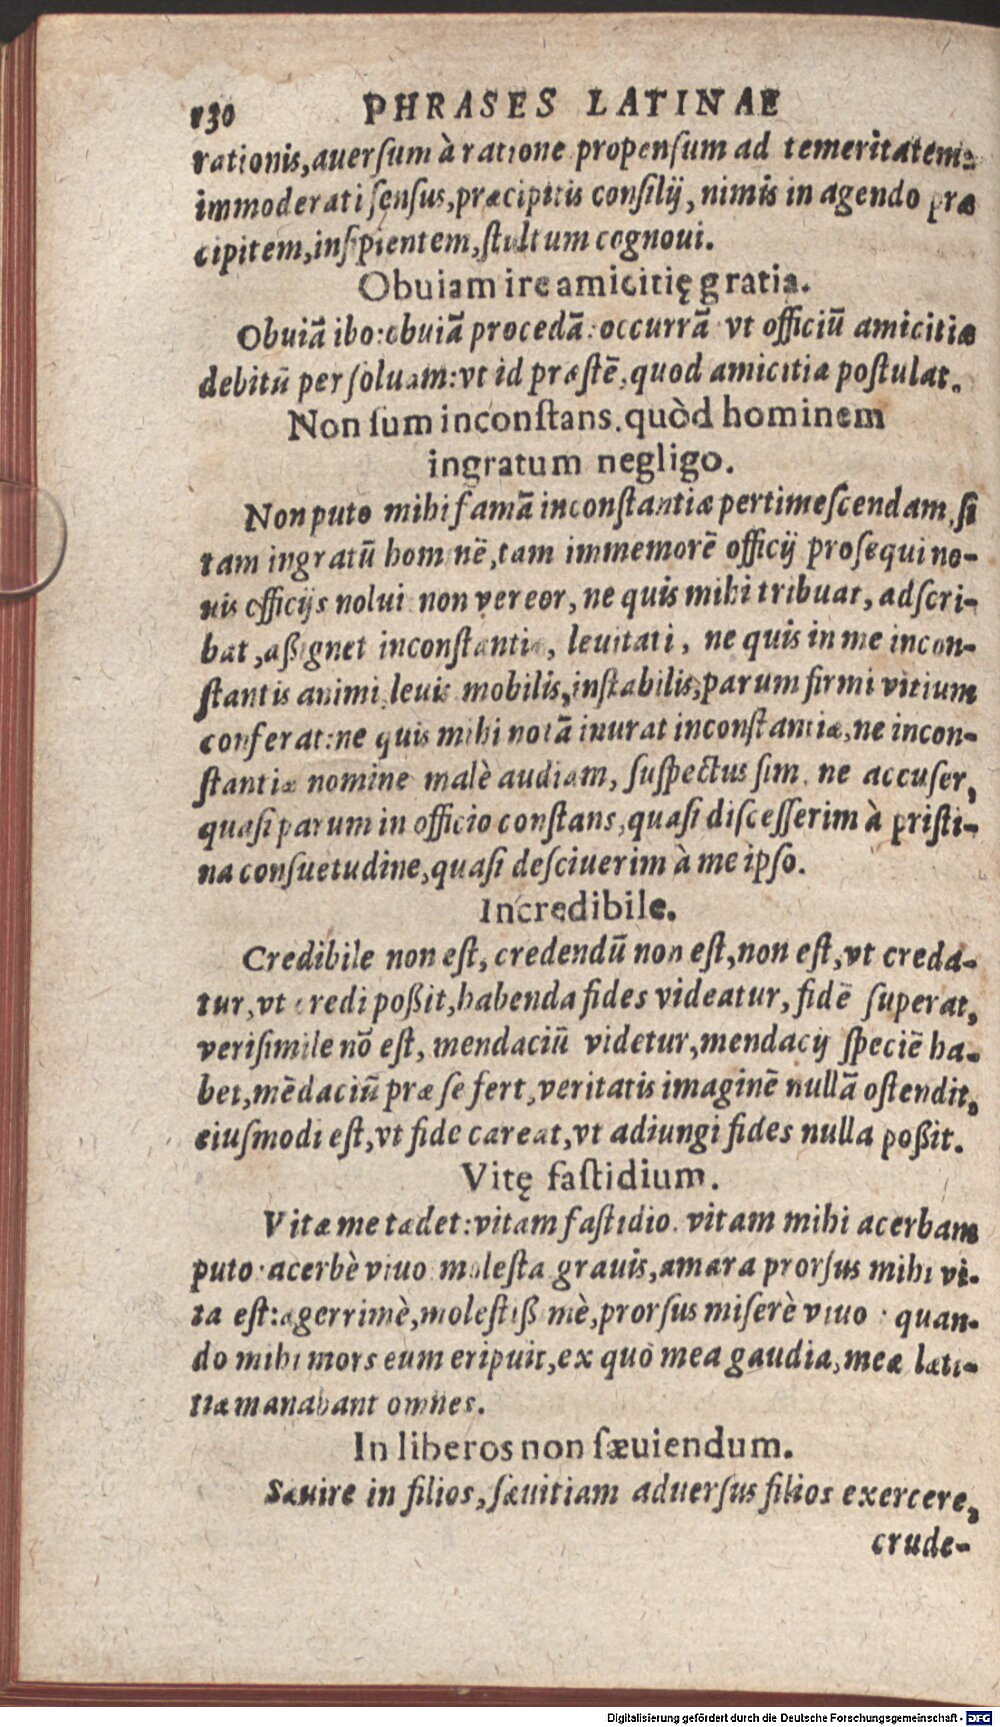 130 PHRASES LATINAE
rationis, auerſum à ratione propenſum ad temeritatem:
immoderati ſenſus, præcipitis conſilij, nimis in agendo præ
cipitem, inſipientem, ſtultum cognoui.
Obuiam ire amicitię gratia.
Obuiā ibo: obuiā procedā: occurrā vt officiū amicitiæ
debitū perſoluam: vt id præſtē, quod amicitia poſtulat.
Non ſum inconſtans, quòd hominem
ingratum negligo.
Non puto mihi famā inconſtantiæ pertimeſcendam, ſi
tam ingratū hominē, tam immemorē officij proſequi no-
uis officijs nolui non vereor, ne quis mihi tribuat, adſcri-
bat, aßignet inconſtantiæ, leuitati, ne quis in me incon-
ſtantis animi, leuis mobilis, inſtabilis, parum firmi vitium
conferat: ne quis mihi notā inurat inconſtantiæ, ne incon-
ſtantiæ nomine malè audiam, ſuſpectus ſim. ne accuſer,
quaſi parum in officio conſtans, quaſi diſceſſerim à priſti-
na conſuetudine, quaſi deſciuerim à me ipſo.
Incredibile.
Credibile non eſt, credendū non eſt, non eſt, vt creda-
tur, vt credi poßit, habenda fides videatur, fidē ſuperat,
veriſimile nō eſt, mendaciū videtur, mendacij ſpeciē ha-
bet, mēdaciū præ ſe fert, veritatis imaginē nullā oſtendit,
eiuſmodi eſt, vt fide careat, vt adiungi fides nulla poßit.
Vitę faſtidium.
Vitæ me tædet: vitam faſtidio. vitam mihi acerbam
puto· acerbè viuo moleſta grauis, amara prorſus mihi vi-
ta eſt: ægerrimè, moleſtißimè, prorſus miſerè viuo · quan-
do mihi mors eum eripuit, ex quo mea gaudia, meæ læti-
tiæ manabant omnes.
In liberos non ſæuiendum.
Sæuire in filios, ſæuitiam aduerſus filios exercere,
crude-
Digitalisierung gefördert durch die Deutsche Forschungsgemeinschaft - DFG